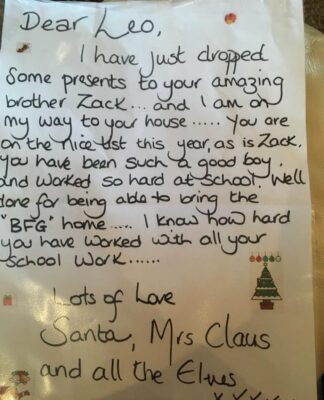 Dear Leo,
I have just dropped
Some presents to your amazing
brother Zack... and I am on
my way to your house ..... You are
on the nice list this year, as is Zack.
You have been such a good boy.
and worked so hard at school. Well
done for being able to bring the
"BFG" home..... I know how hard
you have worked with all your
School work......
Lots of Love
Santa, Mrs Claus
and all the Elves
x x x x